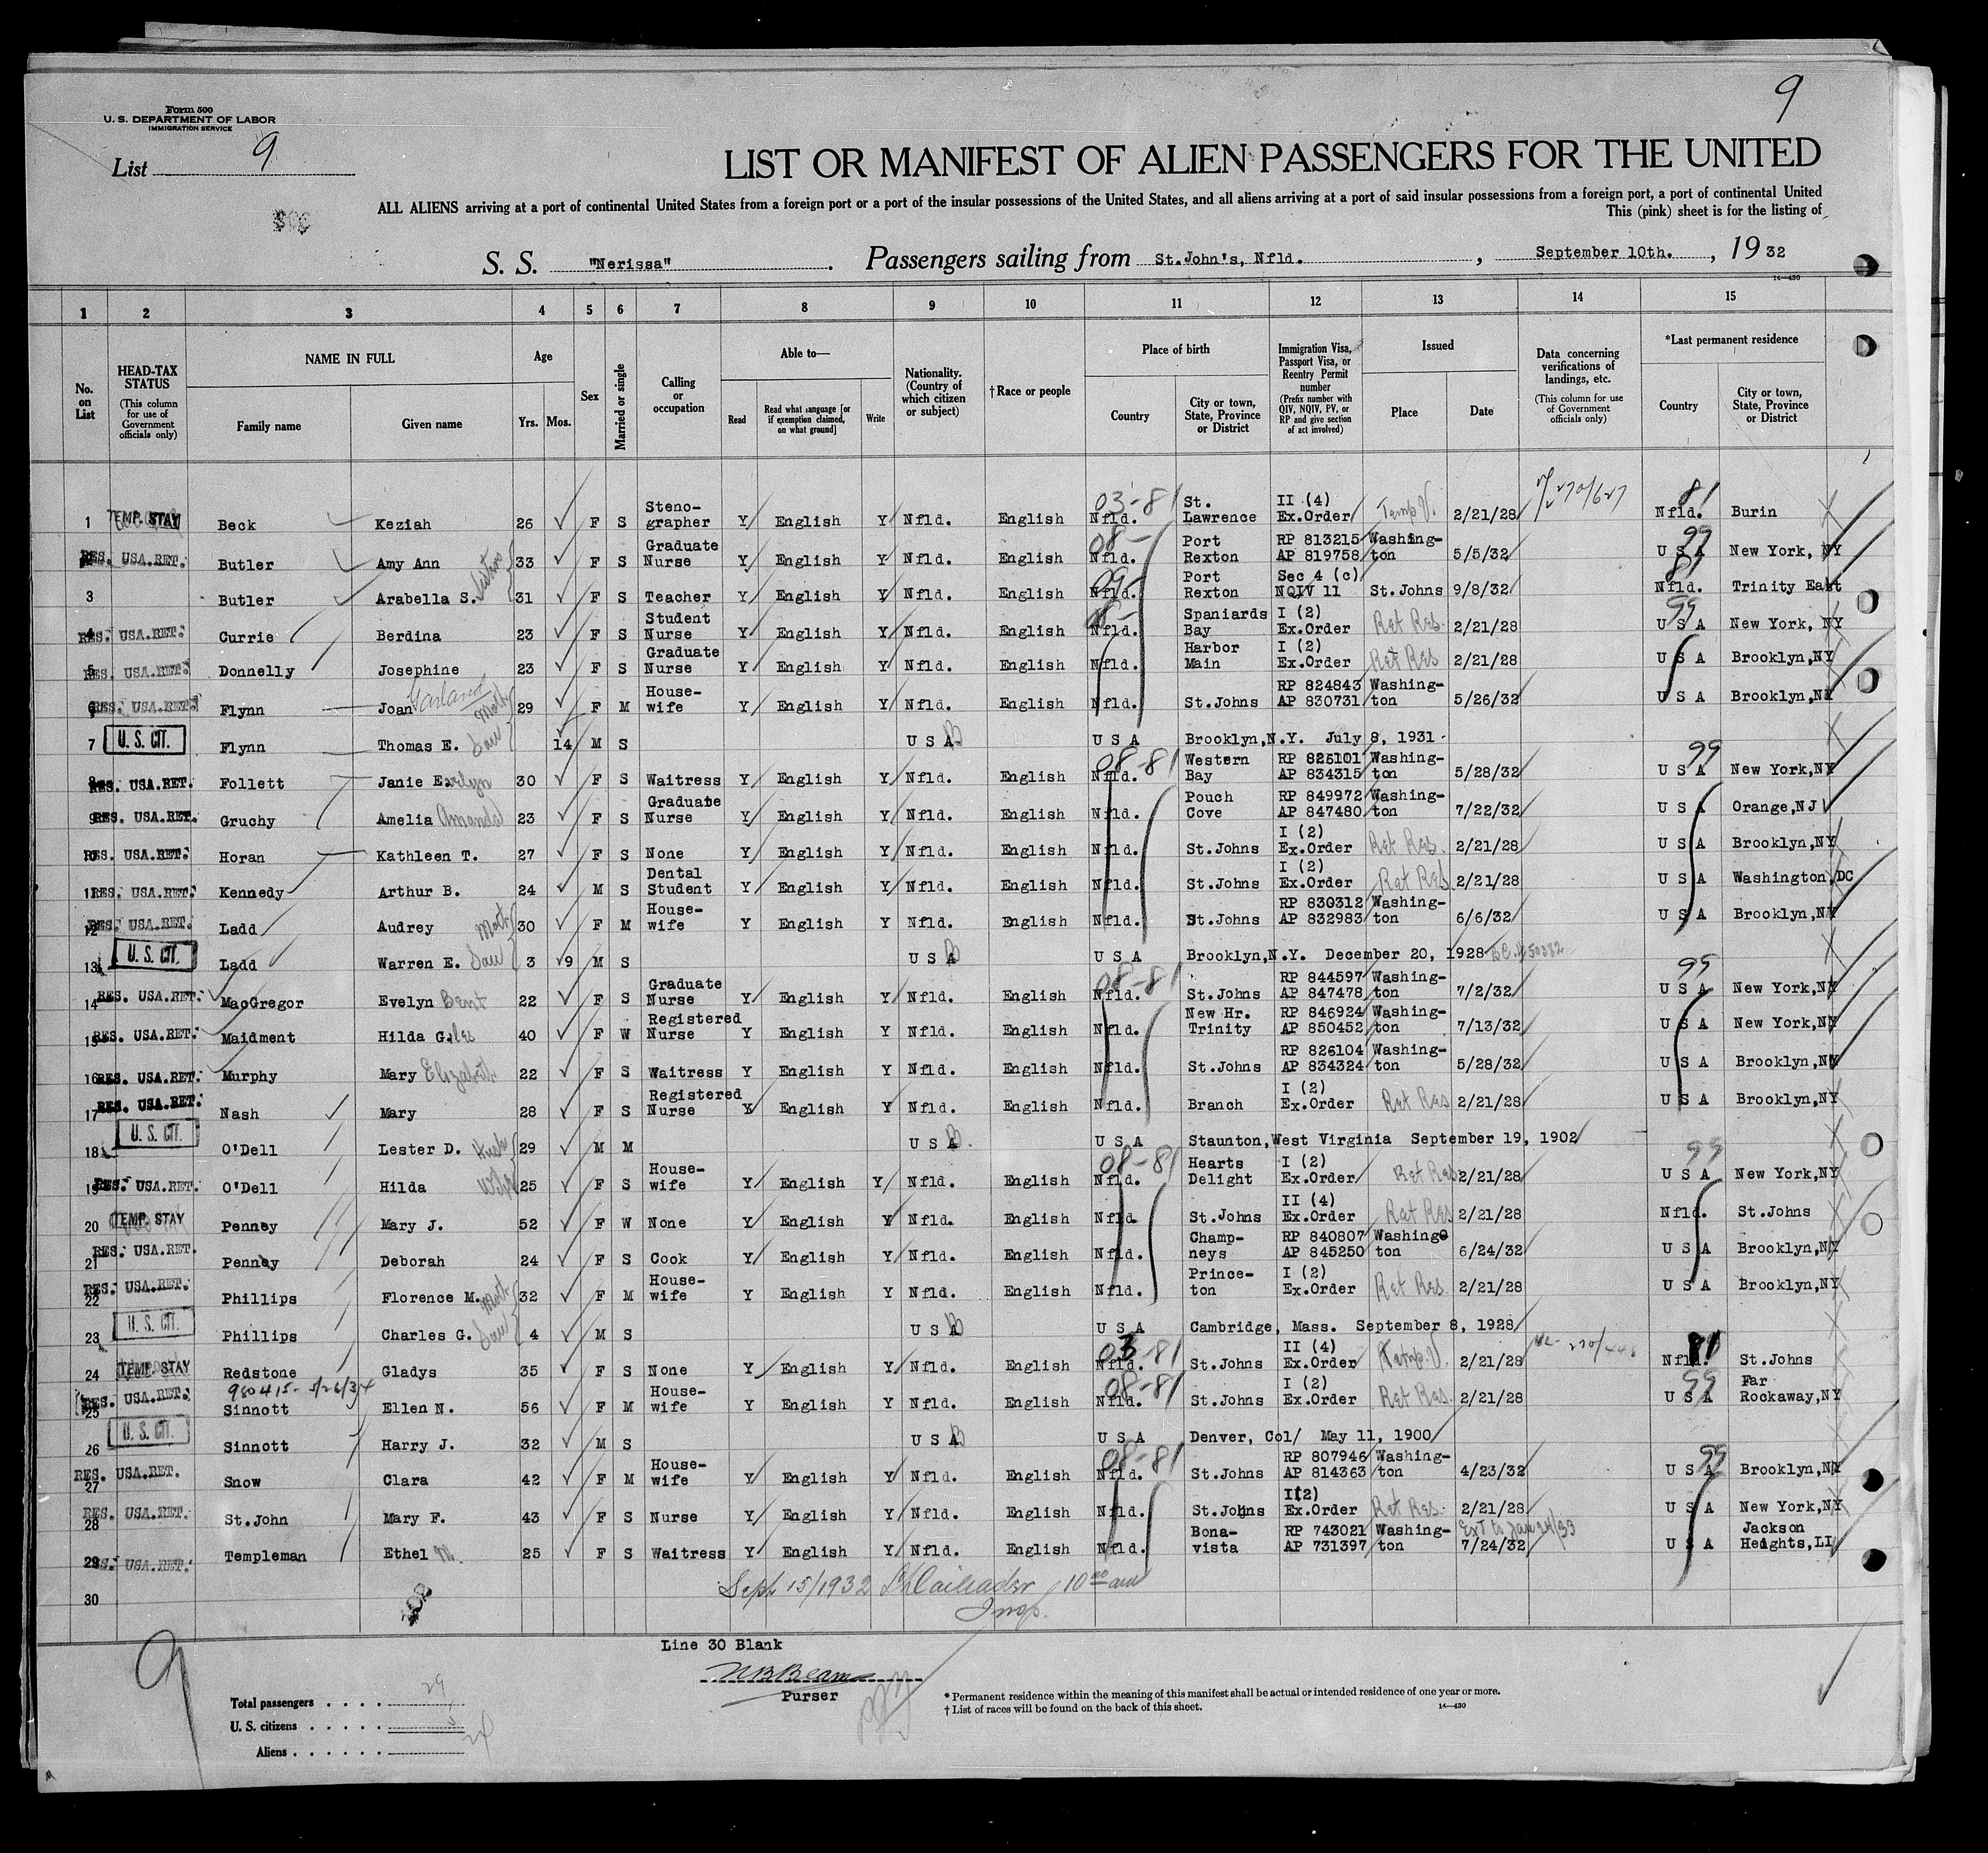 9
Form 500
U. S. DEPARTMENT OF LABOR
IMMIGRATION SERVICE
List 9
LIST OR MANIFEST OF ALIEN PASSENGERS FOR THE UNITED
ALL ALIENS arriving at a port of continental United States from a foreign port or a port of the insular possessions of the United States, and all aliens arriving at a port of said insular possessions from a foreign port, a port of continental United
This (pink) sheet is for the listing of
S. S. "Nerissa". Passengers sailing from St.John's, Nfld. , September 10th. , 19 32
14—430
1 2 3 4 5 6 7 8 9 10 11 12 13 14 15
No. on List
HEAD-TAX STATUS (This column for use of Government officials only)
NAME IN FULL Family name Given name
Age Yrs. Mos.
Sex
Married or single
Calling or occupation
Able to— Read Read what language [or if exemption claimed, on what ground] Write
Nationality. (Country of which citizen or subject)
† Race or people
Place of birth Country City or town, State, Province or District
Immigration Visa, Passport Visa, or Reentry Permit number (Prefix number with QIV, NQIV, PV, or RP and give section of act involved)
Issued Place Date
Data concerning verifications of landings, etc. (This column for use of Government officials only)
*Last permanent residence Country City or town, State, Province or District
1 TEMP. STAY Beck Keziah 26 F S Steno-grapher Y English Y Nfld. English 03-81 Nfld. St. Lawrence II (4) Ex.Order Temp V. 2/21/28 81 Nfld. Burin
2 RES. USA.RET. Butler Amy Ann 33 F S Graduate Nurse Y English Y Nfld. English 08- Nfld. Port Rexton RP 813215 AP 819758 Washing-ton 5/5/32 99 U S A New York, NY
3 Butler Arabella S. Sisters 31 F S Teacher Y English Y Nfld. English 09- Nfld. Port Rexton Sec 4 (c) NQIV 11 St.Johns 9/8/32 81 Nfld. Trinity East
4 RES. USA.RET. Currie Berdina 23 F S Student Nurse Y English Y Nfld. English Nfld. Spaniards Bay I (2) Ex.Order Ret Res. 2/21/28 99 U S A New York, NY
5 RES. USA.RET. Donnelly Josephine 23 F S Graduate Nurse Y English Y Nfld. English Nfld. Harbor Main I (2) Ex.Order Ret Res 2/21/28 U S A Brooklyn,NY
6 RES. USA.RET. Flynn Joan Garland Moth 29 F M House-wife Y English Y Nfld. English Nfld. St.Johns RP 824843 AP 830731 Washing-ton 5/26/32 U S A Brooklyn,NY
7 U. S. CIT. Flynn Thomas E. 14 M S U S A U S A Brooklyn,N.Y. July 8, 1931
8 RES. USA.RET. Follett Janie Evelyn 30 F S Waitress Y English Y Nfld. English 08-81 Nfld. Western Bay RP 826101 AP 834315 Washing-ton 5/28/32 99 U S A New York,NY
9 RES. USA.RET. Gruchy Amelia Amanda 23 F S Graduate Nurse Y English Y Nfld. English Nfld. Pouch Cove RP 849972 AP 847480 Washing-ton 7/22/32 U S A Orange,NJ
10 RES. USA.RET. Horan Kathleen T. 27 F S None Y English Y Nfld. English Nfld. St.Johns I (2) Ex.Order Ret Res. 2/21/28 U S A Brooklyn,NY
11 RES. USA.RET. Kennedy Arthur B. 24 M S Dental Student Y English Y Nfld. English Nfld. St.Johns I (2) Ex.Order Ret Res 2/21/28 U S A Washington,DC
12 RES. USA.RET. Ladd Audrey Moth 30 F M House-wife Y English Y Nfld. English Nfld. St.Johns RP 830312 AP 832983 Washing-ton 6/6/32 U S A Brooklyn,NY
13 U. S. CIT. Ladd Warren E. 3 9 M S U S A U S A Brooklyn,N.Y. December 20, 1928
14 RES. USA.RET. MacGregor Evelyn Bent 22 F S Graduate Nurse Y English Y Nfld. English 08-81 Nfld. St.Johns RP 844597 AP 847478 Washing-ton 7/2/32 99 U S A New York,NY
15 RES. USA.RET. Maidment Hilda Giles 40 F W Registered Nurse Y English Y Nfld. English Nfld. New Hr. Trinity RP 846924 AP 850452 Washing-ton 7/13/32 U S A New York,NY
16 RES. USA.RET. Murphy Mary Elizabeth 22 F S Waitress Y English Y Nfld. English Nfld. St.Johns RP 826104 AP 834324 Washing-ton 5/28/32 U S A Brooklyn,NY
17 RES. USA.RET. Nash Mary 28 F S Registered Nurse Y English Y Nfld. English Nfld. Branch I (2) Ex.Order Ret Res 2/21/28 U S A Brooklyn,NY
18 U. S. CIT. O'Dell Lester D. Husb 29 M M U S A U S A Staunton,West Virginia September 19, 1902
19 RES. USA.RET. O'Dell Hilda Wife 25 F S House-wife Y English Y Nfld. English 08-81 Nfld. Hearts Delight I (2) Ex.Order Ret Res 2/21/28 99 U S A New York,NY
20 TEMP. STAY Penney Mary J. 52 F W None Y English Y Nfld. English Nfld. St.Johns II (4) Ex.Order Ret Res 2/21/28 Nfld. St.Johns
21 RES. USA.RET. Penney Deborah 24 F S Cook Y English Y Nfld. English Nfld. Champ-neys RP 840807 AP 845250 Washing ton 6/24/32 U S A Brooklyn,NY
22 RES. USA.RET. Phillips Florence M. Moth 32 F M House-wife Y English Y Nfld. English Nfld. Prince-ton I (2) Ex.Order Ret Res 2/21/28 U S A Brooklyn,NY
23 U. S. CIT. Phillips Charles G. 4 M S U S A U S A Cambridge, Mass. September 8, 1928
24 TEMP. STAY Redstone Gladys 35 F S None Y English Y Nfld. English 03-81 Nfld. St.Johns II (4) Ex.Order 2/21/28 81 Nfld. St.Johns
25 RES. USA.RET. 980415- 5/26/34 Sinnott Ellen N. 56 F M House-wife Y English Y Nfld. English 08-81 Nfld. St.Johns I (2) Ex.Order Ret Res. 2/21/28 99 U S A Far Rockaway,NY
26 U. S. CIT. Sinnott Harry J. 32 M S U S A U S A Denver, Col/ May 11, 1900
27 RES. USA.RET. Snow Clara 42 F M House-wife Y English Y Nfld. English 08-81 Nfld. St.Johns RP 807946 AP 814363 Washing-ton 4/23/32 99 U S A Brooklyn,NY
28 RES. USA.RET. St.John Mary F. 43 F S Nurse Y English Y Nfld. English Nfld. St.Johns I(2) Ex.Order Ret Res. 2/21/28 U S A New York,NY
29 RES. USA.RET. Templeman Ethel M. 25 F S Waitress Y English Y Nfld. English Nfld. Bona-vista RP 743021 AP 731397 Washing-ton Ext to Jan 24/33 7/24/32 U S A Jackson Heights,LI
30
Sept 15/1932 10 00 am
Insp.
Line 30 Blank
Purser
9
Total passengers . . . . 29
U. S. citizens . . . . . 5
Aliens . . . . . . 24
* Permanent residence within the meaning of this manifest shall be actual or intended residence of one year or more.
† List of races will be found on the back of this sheet.
14—430